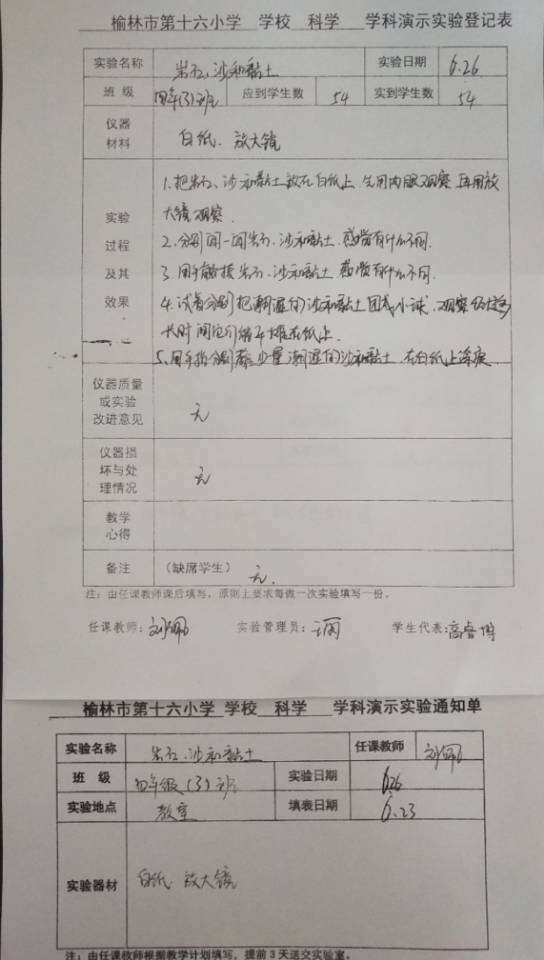 榆林市第十六小学 学校 科学 学科演示实验登记表
实验名称 岩石、沙和黏土 实验日期 6.26
班 级 四年(3)班 应到学生数 54 实到学生数 54
仪器
材料
白纸. 放大镜
实验
过程
及其
效果
1.把岩石、沙和黏土放在白纸上 先用肉眼观察 再用放
大镜观察.
2.分别闻一闻岩石、沙和黏土. 感觉有什么不同.
3.用手触摸岩石、沙和黏土 感觉有什么不同.
4.试着分别把潮湿的沙和黏土团成小球.观察
长时间它们
5.用手指分别蘸少量潮湿的沙和黏土 在白纸上涂痕
仪器质量
或实验
改进意见
无
仪器损
坏与处
理情况
无
教学
心得
备注 (缺席学生) 无.
注：由任课教师课后填写，原则上要求每做一次实验填写一份。
任课教师：刘 实验管理员： 学生代表：高睿博
榆林市第十六小学 学校 科学 学科演示实验通知单
实验名称 岩石、沙和黏土 任课教师 刘
班 级 四年级(3)班 实验日期 6.26
实验地点 教室 填表日期 6.23
实验器材 白纸. 放大镜
注：由任课教师根据教学计划填写，提前3天送交实验室。